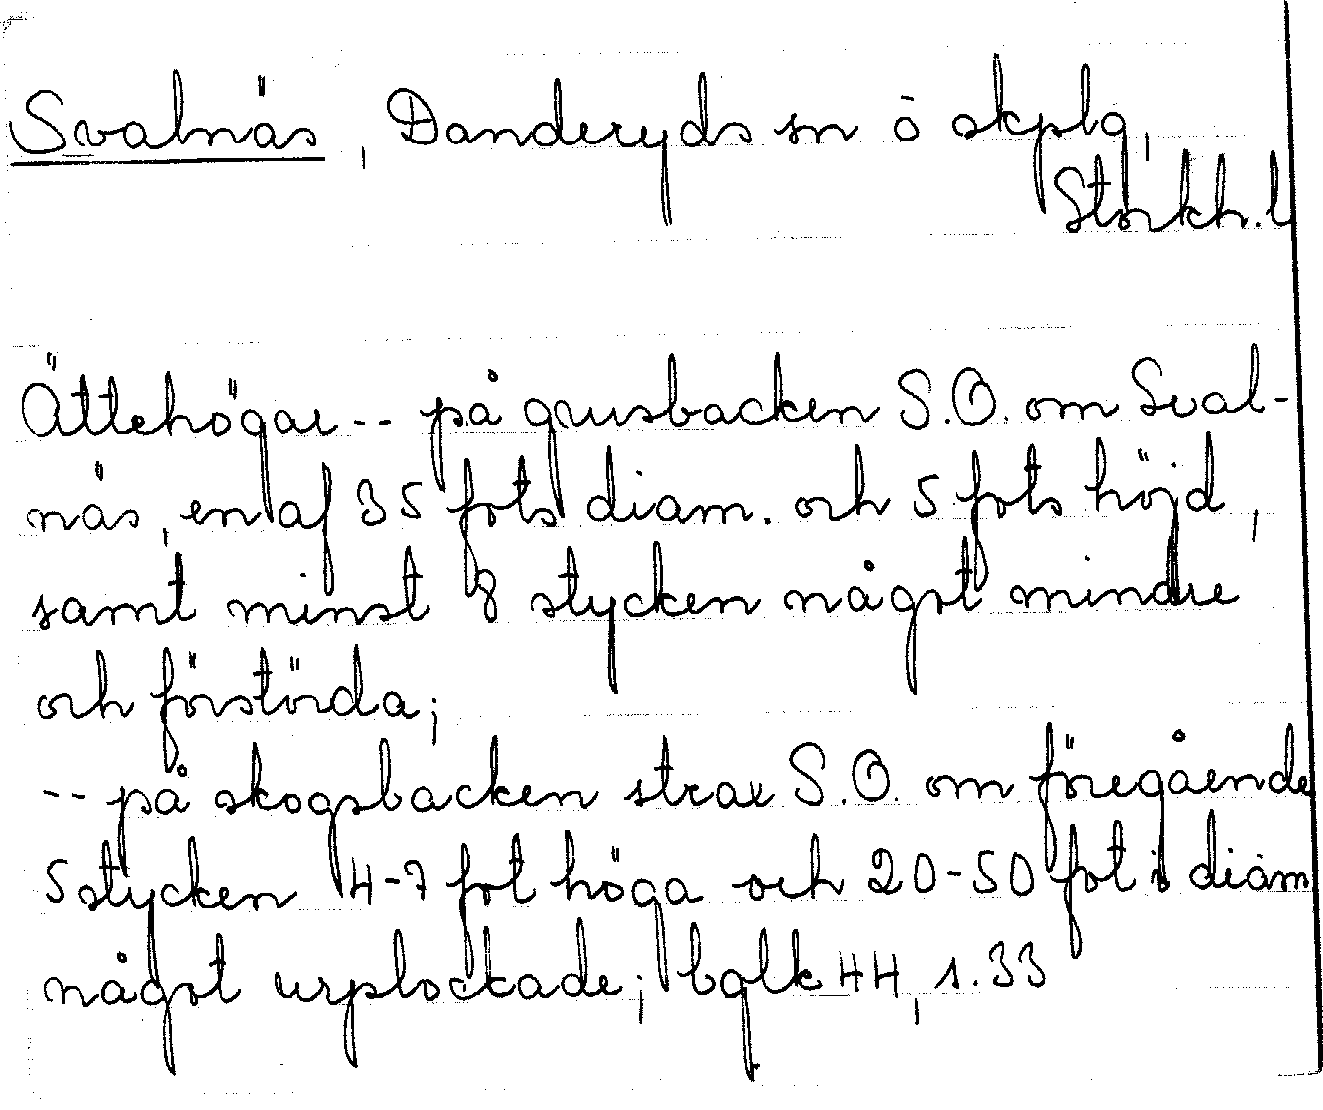 Svalnäs, Danderyds sn ö skplg,
Stockh. l
Ättehögar -- på grusbacken S.O. om Sval-
näs, en af 35 fots diam. och 5 fots höjd,
samt minst 8 stycken något mindre
och förstörda;
-- på skogsbacken strax S.O. om föregående
5 stycken 4-7 fot höga och 20-50 fot i diam
något urplockade; bglk 44, s. 33